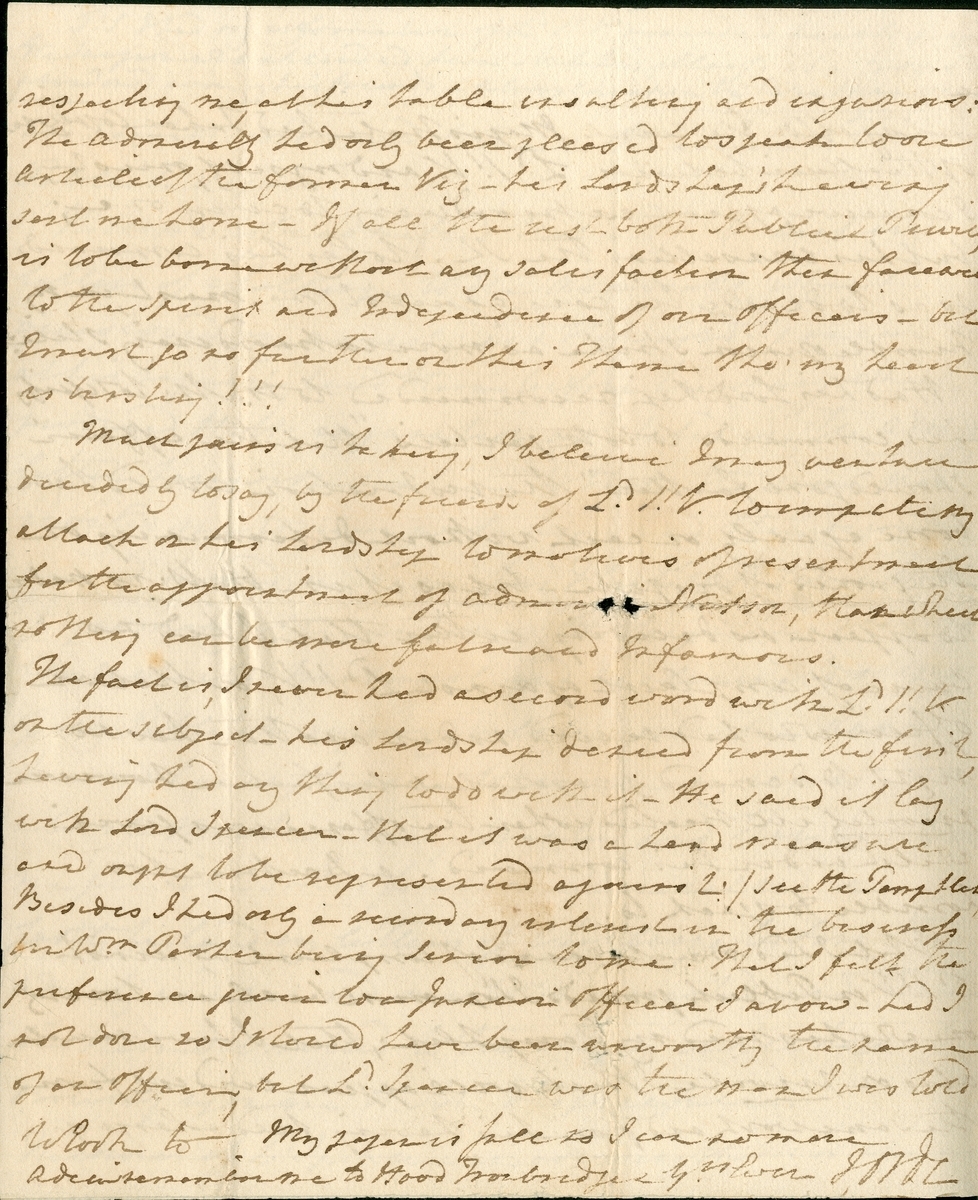 respecting me, at his table insulting and injurious.
The Admiralty had only been pleased to speak to one
Article of the former Viz - his Lordship's having
sent me home - If all the rest both Public &
is to be borne without any satisfaction then farewel
to the Spirit and Independence of our Officers - but
I must go no further on this Theme tho' my heart
is bursting!!!
Much pains is taking, I believe I may venture
decidedly to say, by the friends of Ld. St. V. to impute my
attack on his Lordship to motives of resentment
for the appointment of Nelson, than which
nothing can be more false and Infamous.
The fact is, I never had a second word with Ld. St. V
on the subject - his Lordship denied from the first,
having had any thing to do with it - He said it lay
with Lord Spencer - that it was a hard measure
and ought to be represented against! / see the Pamphlet
Besides I had only a secondary interest in the business
Sir Wm Parker being Senior to me. That I felt the
preference given to a Junior Officer I avow - had I
not done so I should have been unworthy the name
of an Officer, but Ld. Spencer was the man I was told
to look to My paper is full so I can no more
Adieu remember me to Hood Trowbridge & Yrs Ever